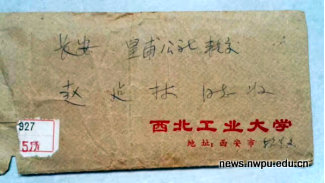 长安 里甫公社 转交
赵 廷 林 同志 收
927
5角
西北工业大学
地址:西安市
news.nwpu.edu.cn